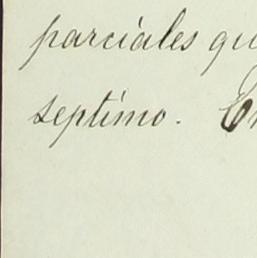 parciales qu
septimo. En